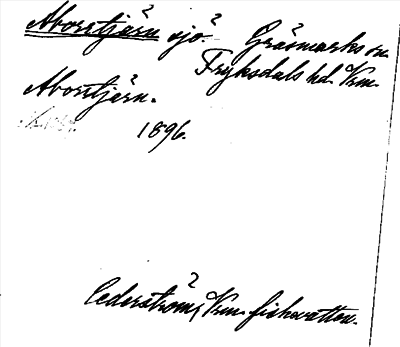 Aborrtjärn sjö. Gräsmarks sn.
Fryksdals hd. Vrm.
Aborrtjärn.
1896.
Cederström, Vrm. fiskvatten.